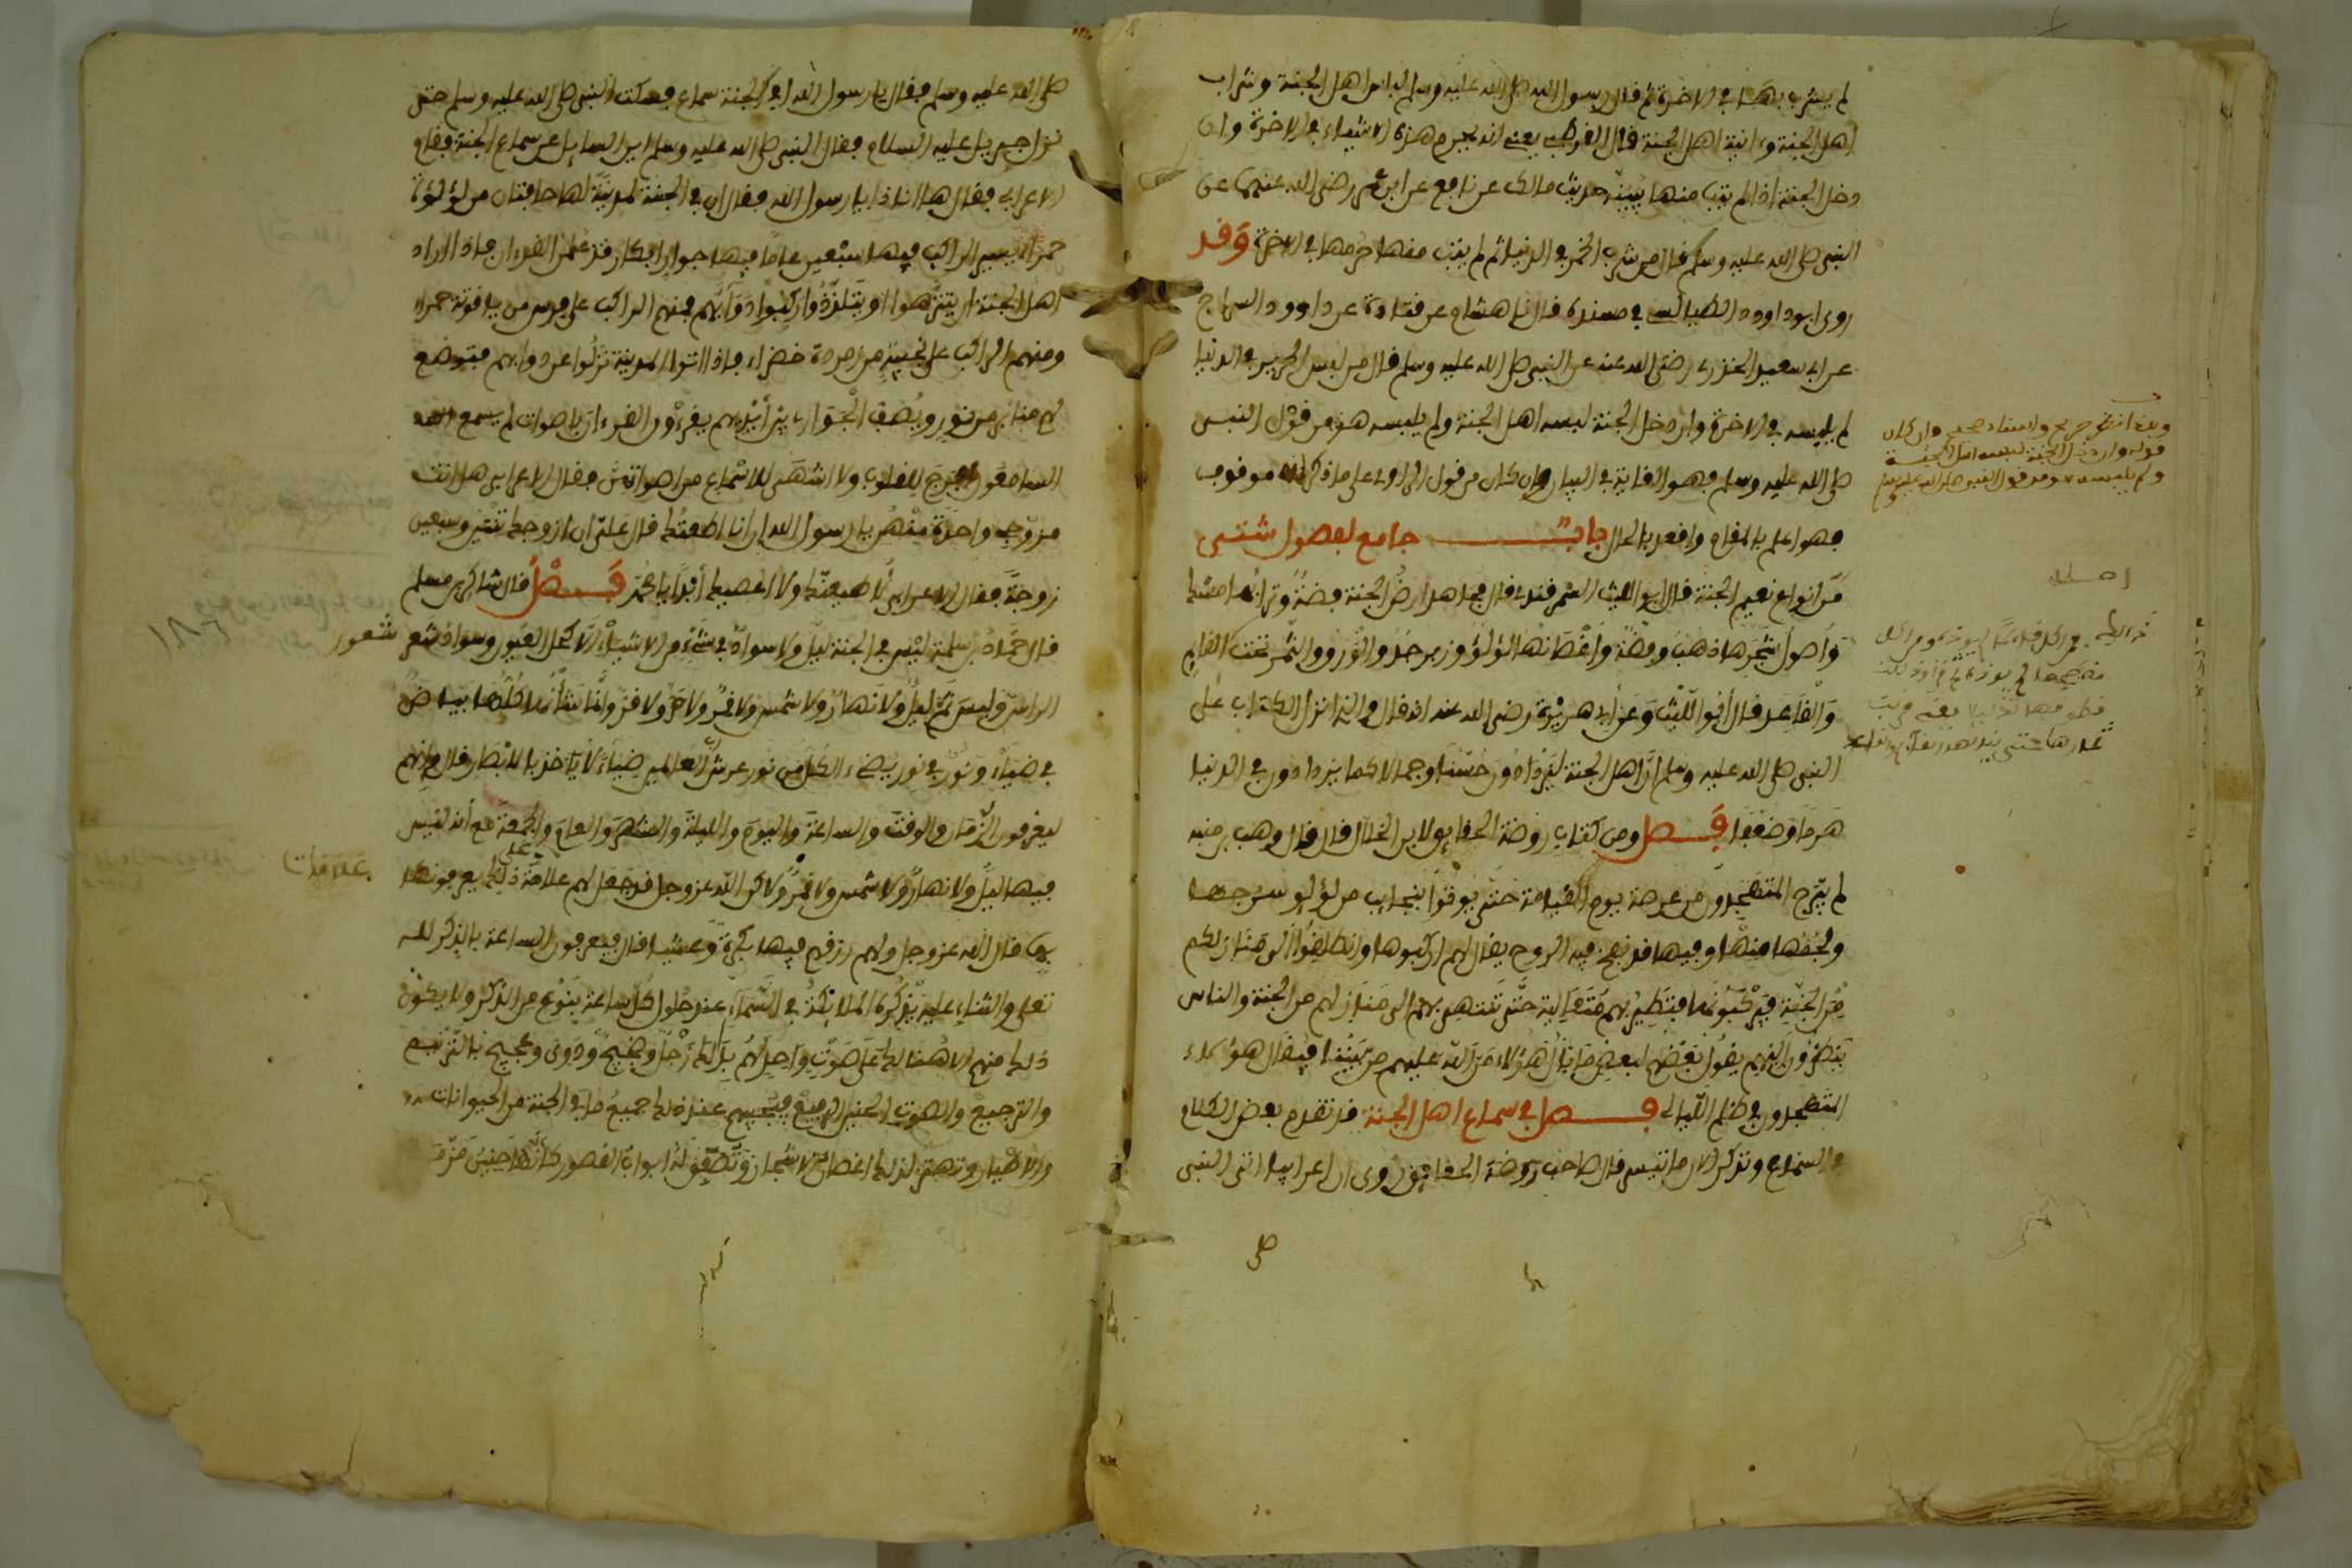 لم يشرب بها في الاخرة ثم قال رسول الله صلى الله عليه وسلم لباس اهل الجنة وشراب
اهل الجنة وءانية اهل الجنة قال القرطبي يعني انه يحرم هذه الاشياء في الاخرة وان
دخل الجنة اذا لم يتب منها يبينه حديث مالك عن نافع عن ابن عمر رضي الله عنهما عن
النبي صلى الله عليه وسلم قال من شرب الخمر في الدنيا ثم لم يتب منها حرمها في الاخرة وقد
روى ابو داوود الطيالسي في مسنده قال نا هشام عن قتادة عن داوود السراج
عن ابي سعيد الخدري رضي الله عنه عن النبي صلى الله عليه وسلم قال من لبس الحرير في الدنيا
لم يلبسه في الاخرة وان دخل الجنة لبسه اهل الجنة ولم يلبسه هو من قول النبي
صلى الله عليه وسلم فهو الغاية في البيان وان كان من قول الراوي على ما ذكر انه موقوف
فهو اعلم بالمقام واقعد بالحال باب جامع لفصول شتى
من انواع نعيم الجنة قال ابو الليث السمرقندي قال مجاهد ارض الجنة فضة وترابها مسك
واصول شجرها ذهب وفضة واغصانها لؤلؤ وزبرجد والورق والثمر تحت القايم
والقاعد قال ابو الليث وعن ابي هريرة رضي الله عنه انه قال والذي انزل الكتاب على
النبي صلى الله عليه وسلم ان اهل الجنة ليزدادون حسنا وجمالا كما يزدادون في الدنيا
هرما وضعفا فصل ومن كتاب روضة الحقايق لابن الخلال قال قال وهب بن منبه
لم يبرح المتهجدون من عرصة يوم القيامة حتى يوتوا بنجايب من لؤلؤ سرجها
ولجمها منها وفيها قد نفخ فيه الروح يقال لهم اركبوها وانطلقوا الى منازلكم
من الجنة فيركبونها فتطير بهم متعالية حتى تنتهي بهم الى منازلهم من الجنة والناس
ينظرون اليهم يقول بعضهم لبعض ما بال هؤلاء من الله عليهم من بيننا فيقال هؤلاء
المتهجدون في ظلم الليالي فصل في سماع اهل الجنة قد تقدم بعض الكلام
والسماع ونذكر الان ما تيسر قال صاحب روضة الحقايق روي ان اعرابيا اتى النبي
وان كان
قوله وان دخل الجنة لبسه اهل الجنة
ولم يلبسه هو من قول النبي صلى الله عليه وسلم
صلى الله عليه وسلم فقال يا رسول الله افي الجنة سماع فسكت النبي صلى الله عليه وسلم حتى
نزل جبريل عليه السلام فقال النبي صلى الله عليه وسلم اين السايل عن سماع الجنة فقام
الاعرابي فقال ها انا ذا يا رسول الله فقال ان في الجنة لمدينة لها حافتان من لؤلؤة
حمراء يسير الراكب فيها سبعين عاما فيها جوار ابكار قد علمن القرءان فاذا اراد
اهل الجنة ان يتنزهوا او يتلذذوا ركبوا دوابهم فمنهم الراكب على فرس من ياقوتة حمراء
ومنهم الراكب على نجيبة من زمردة خضراء فاذا اتوا المدينة نزلوا عن دوابهم فتوضع
لهم منابر من نور ويصف الجواري بين ايديهم يقرءون القرءان باصوات لم يسمع
السامعون افرج للقلوب ولا اشهى للاسماع من اصواتهن فقال الاعرابي هل انت
مزوجي واحدة منهن يا رسول الله ان انا اطعتك قال علي ان ازوجك ثنتين وسبعين
زوجة فقال الاعرابي لاطيعنك ولا اعصيك ابدا يا محمد فصل قال شاكر بن مسلم
قال حماد بن سلمة ليس في الجنة ليل ولا سواد في شيء من الاشياء الا كحل العيون وسواد شعر
شعور
الراس وليس ثم ليل ولا نهار ولا شمس ولا قمر ولا حر ولا قر وانما شانها كلها بياض
في ضياء ونور في نور يضيء الكل من نور عرش رب العالمين ضياء لا ياخذ بالابصار قال وانهم
ليعرفون الزمان والوقت والساعة واليوم والليلة والشهر والعام والجمعة مع انه ليس
فيها ليل ولا نهار ولا شمس ولا قمر ولاكن الله عز وجل قد جعل لهم علامة على ذلك يعرفونها
علامات
بها قال الله عز وجل ولهم رزقهم فيها بكرة وعشيا قال فيعرفون الساعة بالذكر لله
تعلى والثناء عليه يذكره الملايكة في السماء عند حلول كل ساعة بنوع من الذكر ولا يكون
ذلك منهم الا هنالك على صوت واحد لهم بذلك زجل وضجيج ودوي وعجيج بالترنيم
والترجيع والصوت الحنين الرفيع فيجيبهم عند ذلك جميع ما في الجنة من الحيوانات
والاطيار وتهتز لذلك اغصان الاشجار وتصفق له ابواب القصور كانها حنين مزمر
١٨٦